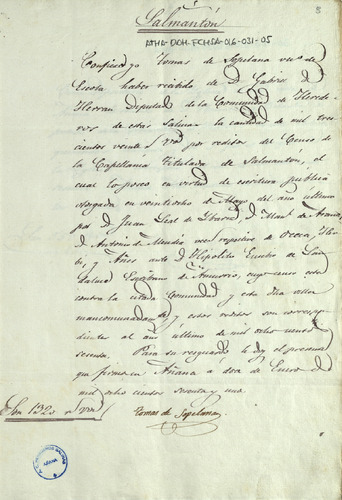 Salmantón
8
ATHA-DOH-FCHSA-016-031-05
Confieso yo Tomas de Sopelana vec.º de
Escota haber recibido de D. Gabriel de
Herran Diputado de la Comunidad de Herede-
ros de estas Salinas la cantidad de mil tres
cientos veinte r.s v.on por reditos del Censo de
la Capellania Titulada de Salmantón, el
cual lo poseo en virtud de escritura publica
otorgada en veintiocho de Mayo del año ultimo
por D. Juan Leal de Ibarra, D. Man.l de
D. Antonio de Mendia vec.s respective de Oceca
y Añes ante D. Hipolito Eustho de
Escribano de Amurrio, cuyo censo esta
contra la citada Comunidad y esta dia
mancomunadam.te y estos reditos son corresp-
dientes al año último de mil ocho cientos
sesenta. Para su resguardo le doy el presente
que firmo en Añana a doce de Enero de
mil ocho cientos sesenta y uno
Son 1320 r.s v.on
Tomas de Sopelana
AÑANA